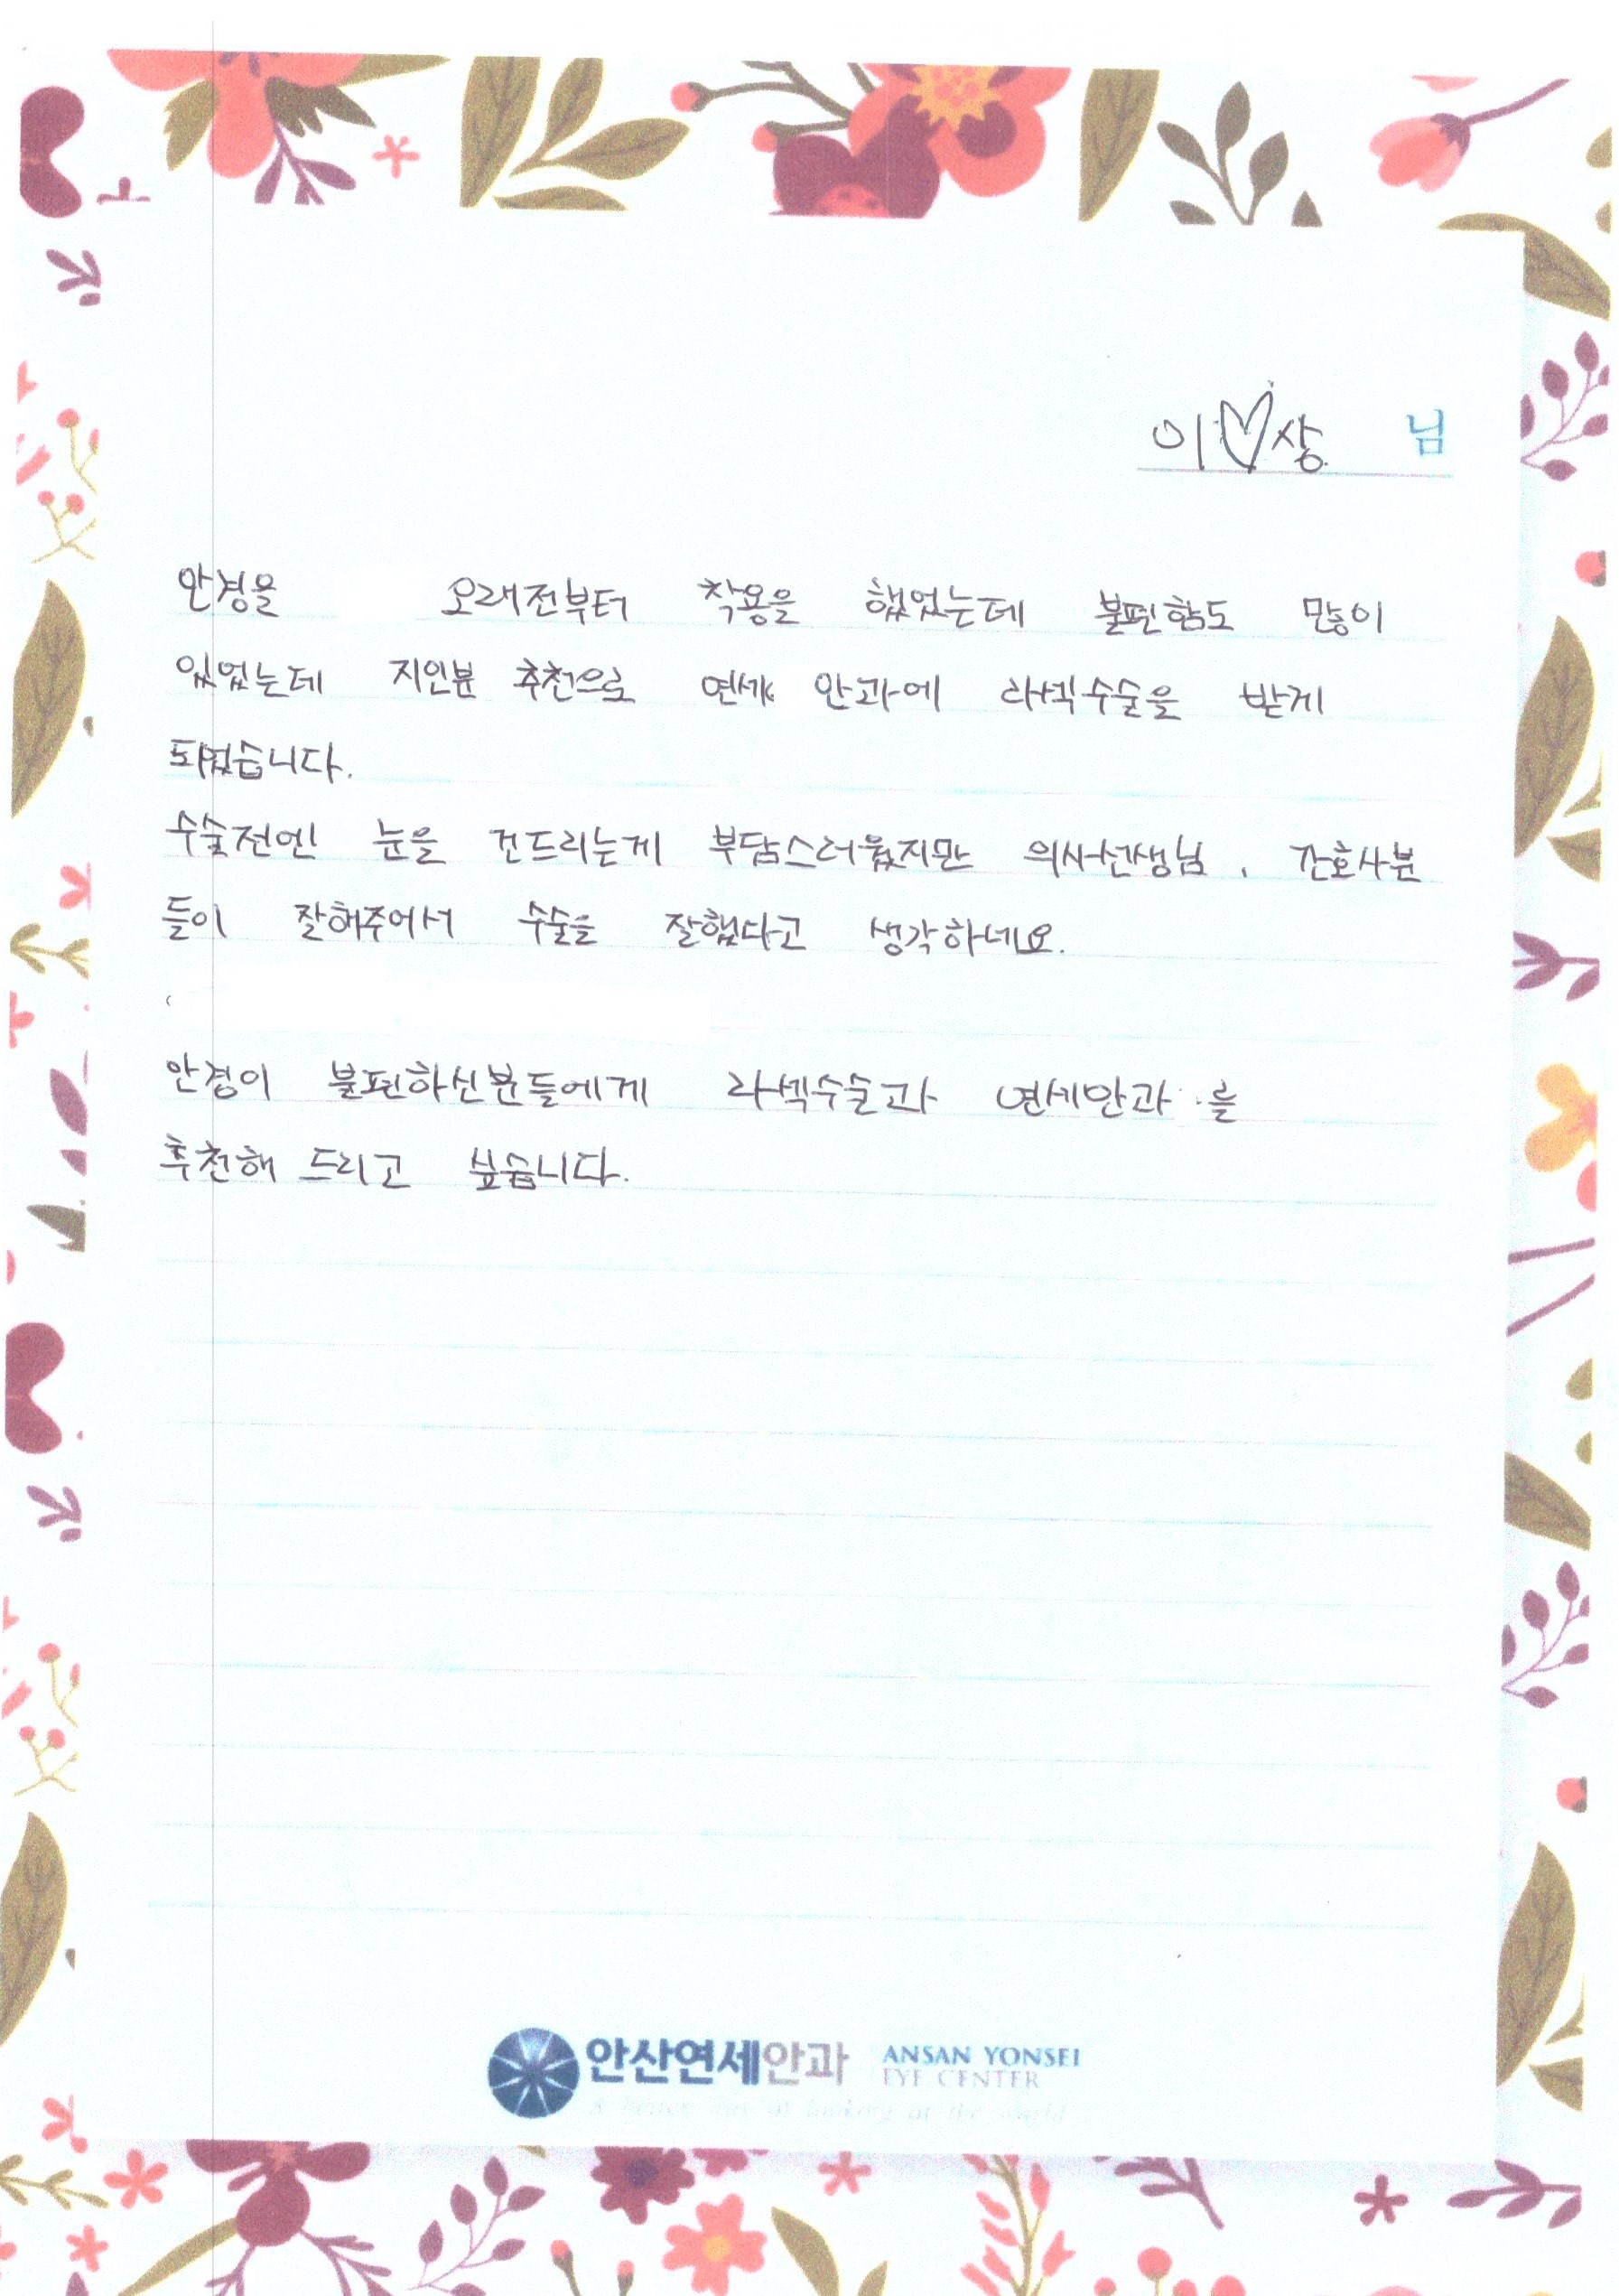 이♡상 님
안경을 오래전부터 착용을 했었는데 불편함도 많이
있었는데 지인분 추천으로 연세 안과에 라섹수술을 받게
되었습니다.
수술전엔 눈을 건드리는게 부담스러웠지만 의사선생님, 간호사분
들이 잘해주어서 수술을 잘했다고 생각하네요.
안경이 불편하신분들에게 라섹수술과 연세안과를
추천해 드리고 싶습니다.
안산연세안과 ANSAN YONSEI
EYE CENTER
A better way of looking at the world